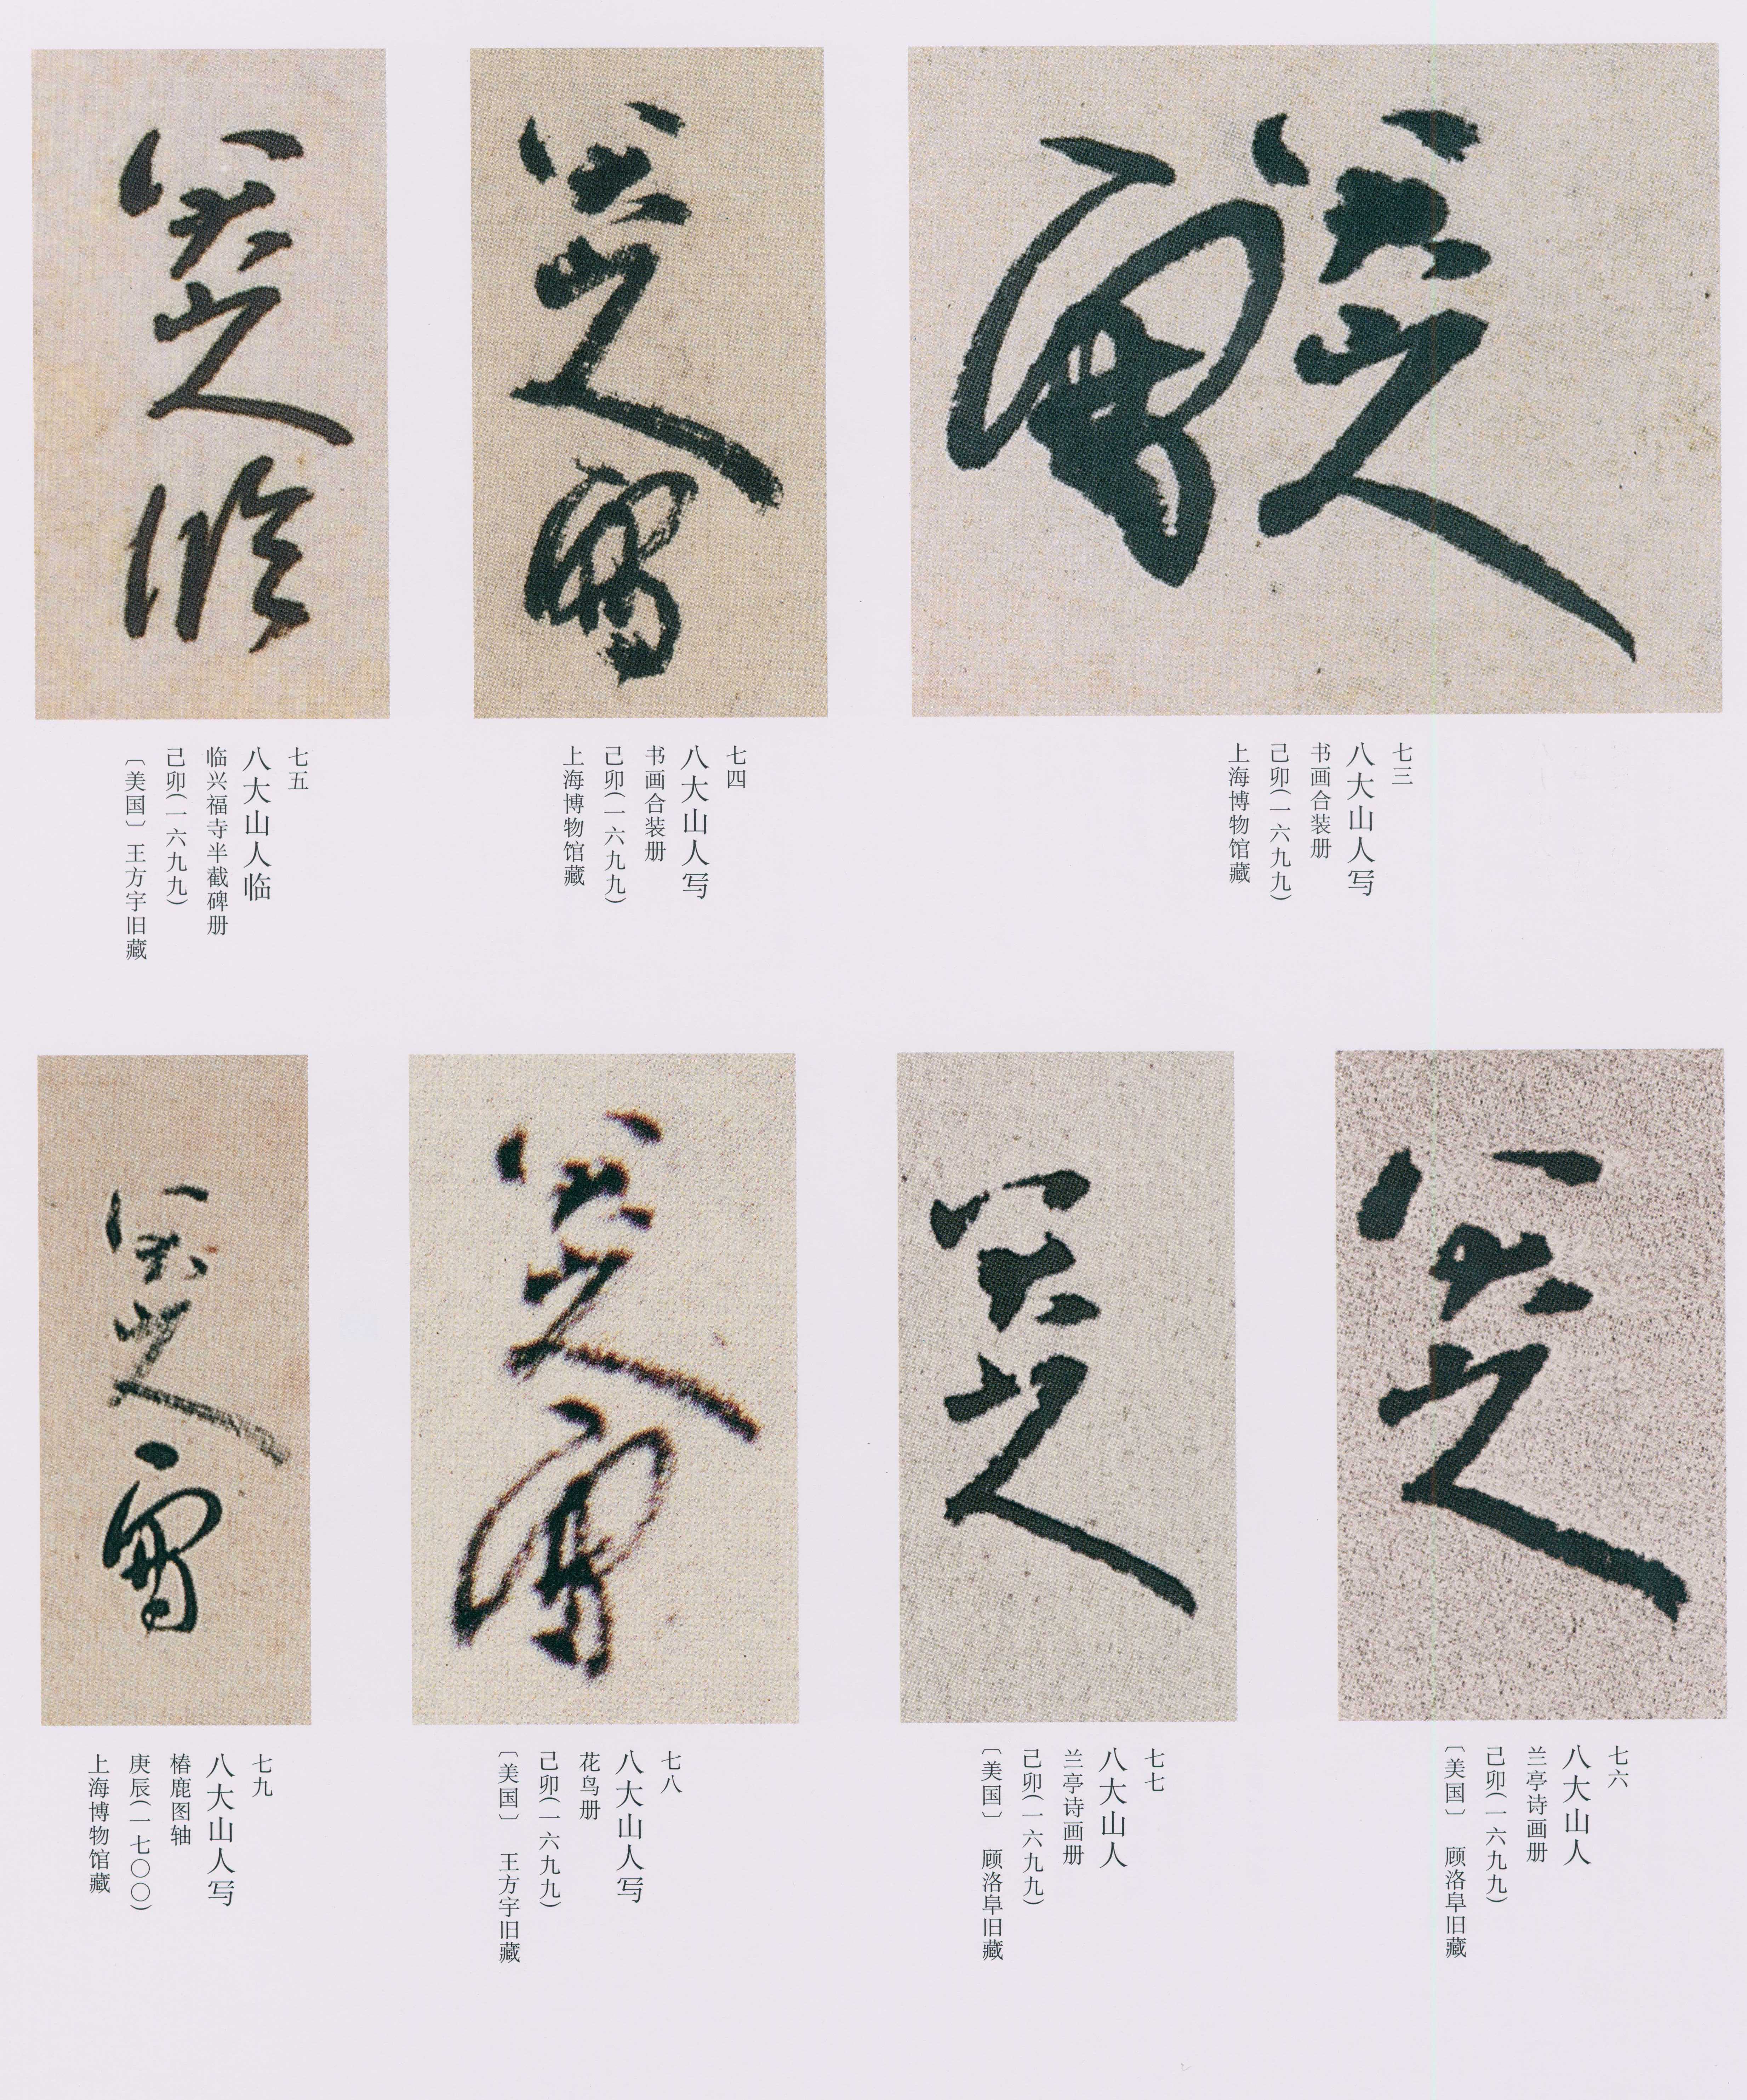 八大山人写
七三
八大山人写
书画合装册
己卯(一六九九)
上海博物馆藏
八大山人写
七四
八大山人写
书画合装册
己卯(一六九九)
上海博物馆藏
八大山人临
七五
八大山人临
临兴福寺半截碑册
己卯(一六九九)
〔美国〕王方宇旧藏
八大山人
七六
八大山人
兰亭诗画册
己卯(一六九九)
〔美国〕 顾洛阜旧藏
八大山人
七七
八大山人
兰亭诗画册
己卯(一六九九)
〔美国〕 顾洛阜旧藏
八大山人写
七八
八大山人写
花鸟册
己卯(一六九九)
〔美国〕 王方宇旧藏
八大山人写
七九
八大山人写
椿鹿图轴
庚辰(一七〇〇)
上海博物馆藏